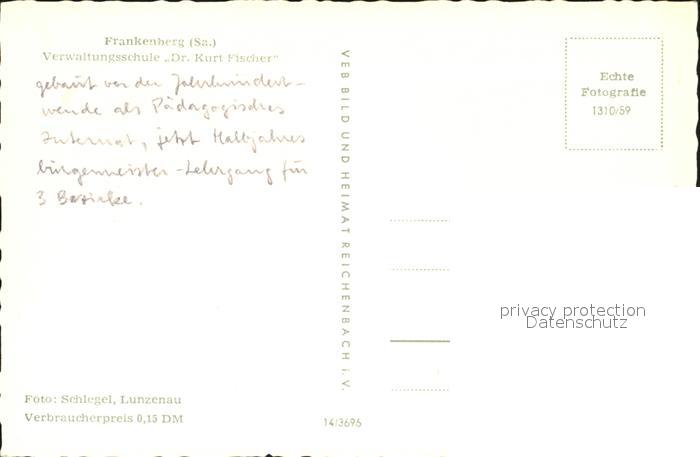 Frankenberg (Sa.)
Verwaltungsschule „Dr. Kurt Fischer"
gebaut vor der Jahrhundert-
wende als Pädagogisches
Internat, jetzt Halbjahres
bürgermeister-Lehrgang für
3 Bezirke.
VEB BILD UND HEIMAT REICHENBACH i. V.
Echte
Fotografie
1310/59
privacy protection
Datenschutz
Foto: Schlegel, Lunzenau
Verbraucherpreis 0,15 DM
14/3695